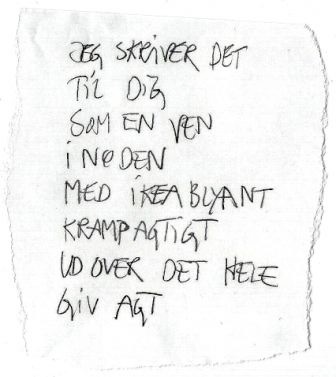 JEG SKRIVER DET
TiL DiG
SOM EN VEN
i NØDEN
MED iKEABLYANT
KRAMPAGTIGT
UD OVER DET HELE
GiV AGT